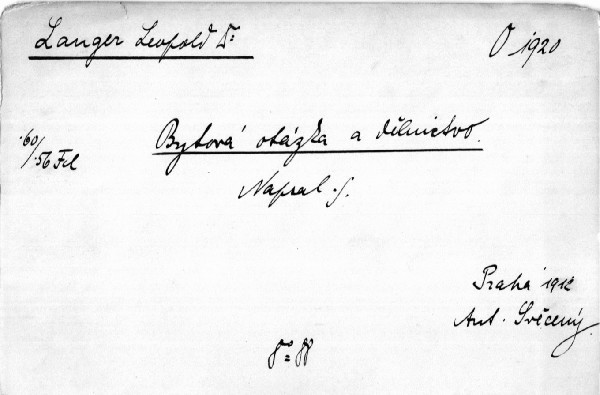 Langer Leopold Dr
O 1920
Bytová otázka a dělnictvo.
60/56 Fil
Napsal -/.
Praha 1912
Ant. Svěcený
8° 88